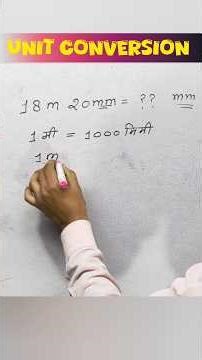 UNIT CONVERSION
18 m 20mm = ?? mm
1 मी = 1000 मिमी
1m